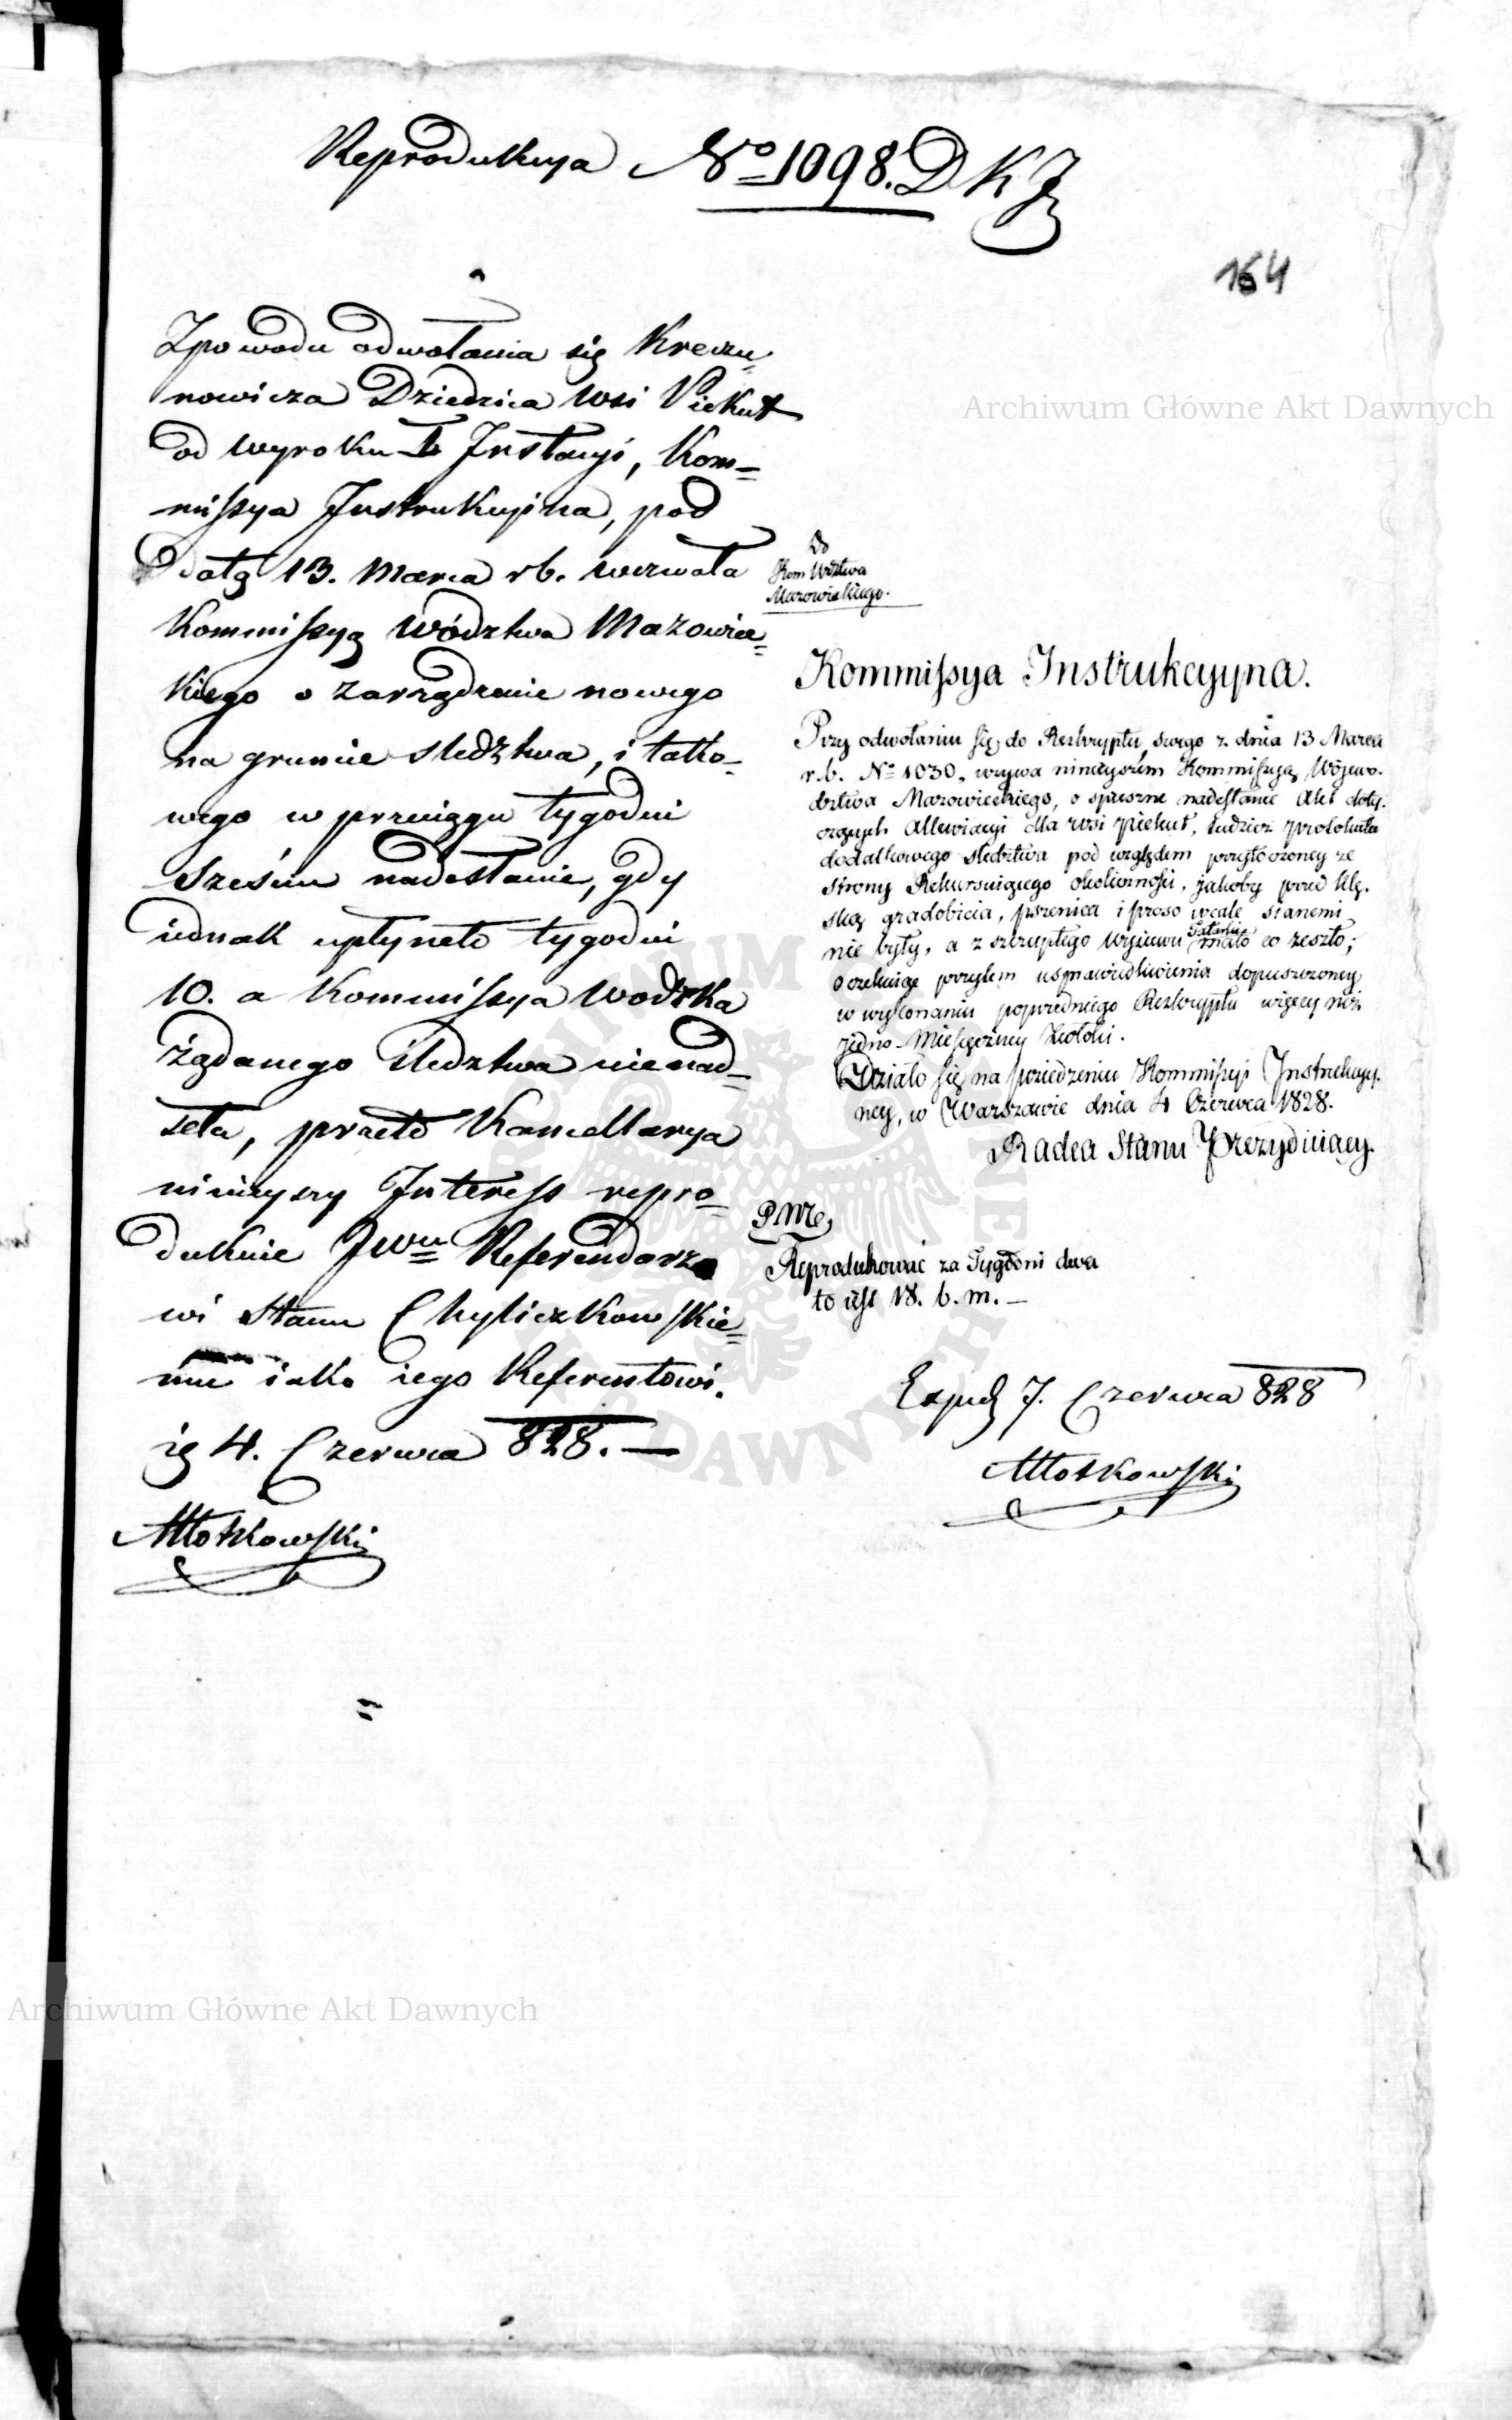 Reprodukcya No 1098. D K J
164
Z powodu odwołania się Kreczu=
nowicza Dziedzica Wsi Piekut
od wyroku I Instancyi, Kom=
missya Instrukcyina, pod
datą 13. Marca rb. wezwała
Kommissyą Wództwa Mazowiec=
kiego o zarządzenie nowego
na gruncie śledztwa, i tako=
wego w przeciągu tygodni
sześciu nadesłanie, gdy
iednak upłyneło tygodni
10. a Kommissya Wodzka
żądanego śledztwa nienad=
seła, przeto Kancellarya
ninieyszy Interess repro=
dukuie JWu Referendarzo
wi Stanu Chyliczkowskie=
mu iako iego Referentowi.
4. Czerwca 828. —
Młotkowski
Do
Kom Wdztwa
Mazowieckiego.
Kommissya Instrukcyyna.
Przy odwołaniu się do Reskryptu swego z dnia 13 Marca
r.b. No 1030, wzywa ninieyszem Kommissyą Wojewo.
dztwa Mazowieckiego, o spieszne nadesłanie Akt doty.
czących Allewiacyi dla wsi Piekut, tudzież protokułu
dodatkowego śledztwa pod względem przytoczoney ze
strony Rekursuiącego okoliczności, jakoby przed klę.
ską gradobicia, pszenica i proso wcale sianemi
nie były, a z szczupłego wysiewu Tatarki mało co zeszło;
oczekuiąc przytem usprawiedliwienia dopuszczoney
w wykonaniu poprzedniego Reskryptu więcey niż
jedno-Miesięczney zwłoki.
Działo się na posiedzeniu Kommissyi Instrukcyy.
ney, w Warszawie dnia 4 Czerwca 1828.
Radca Stanu Prezyduiący.
Reprodukować za Tygodni dwa
to iest 18. b. m. —
Exped 7. Czerwca 828
Młotkowski
Archiwum Główne Akt Dawnych
Archiwum Główne Akt Dawnych